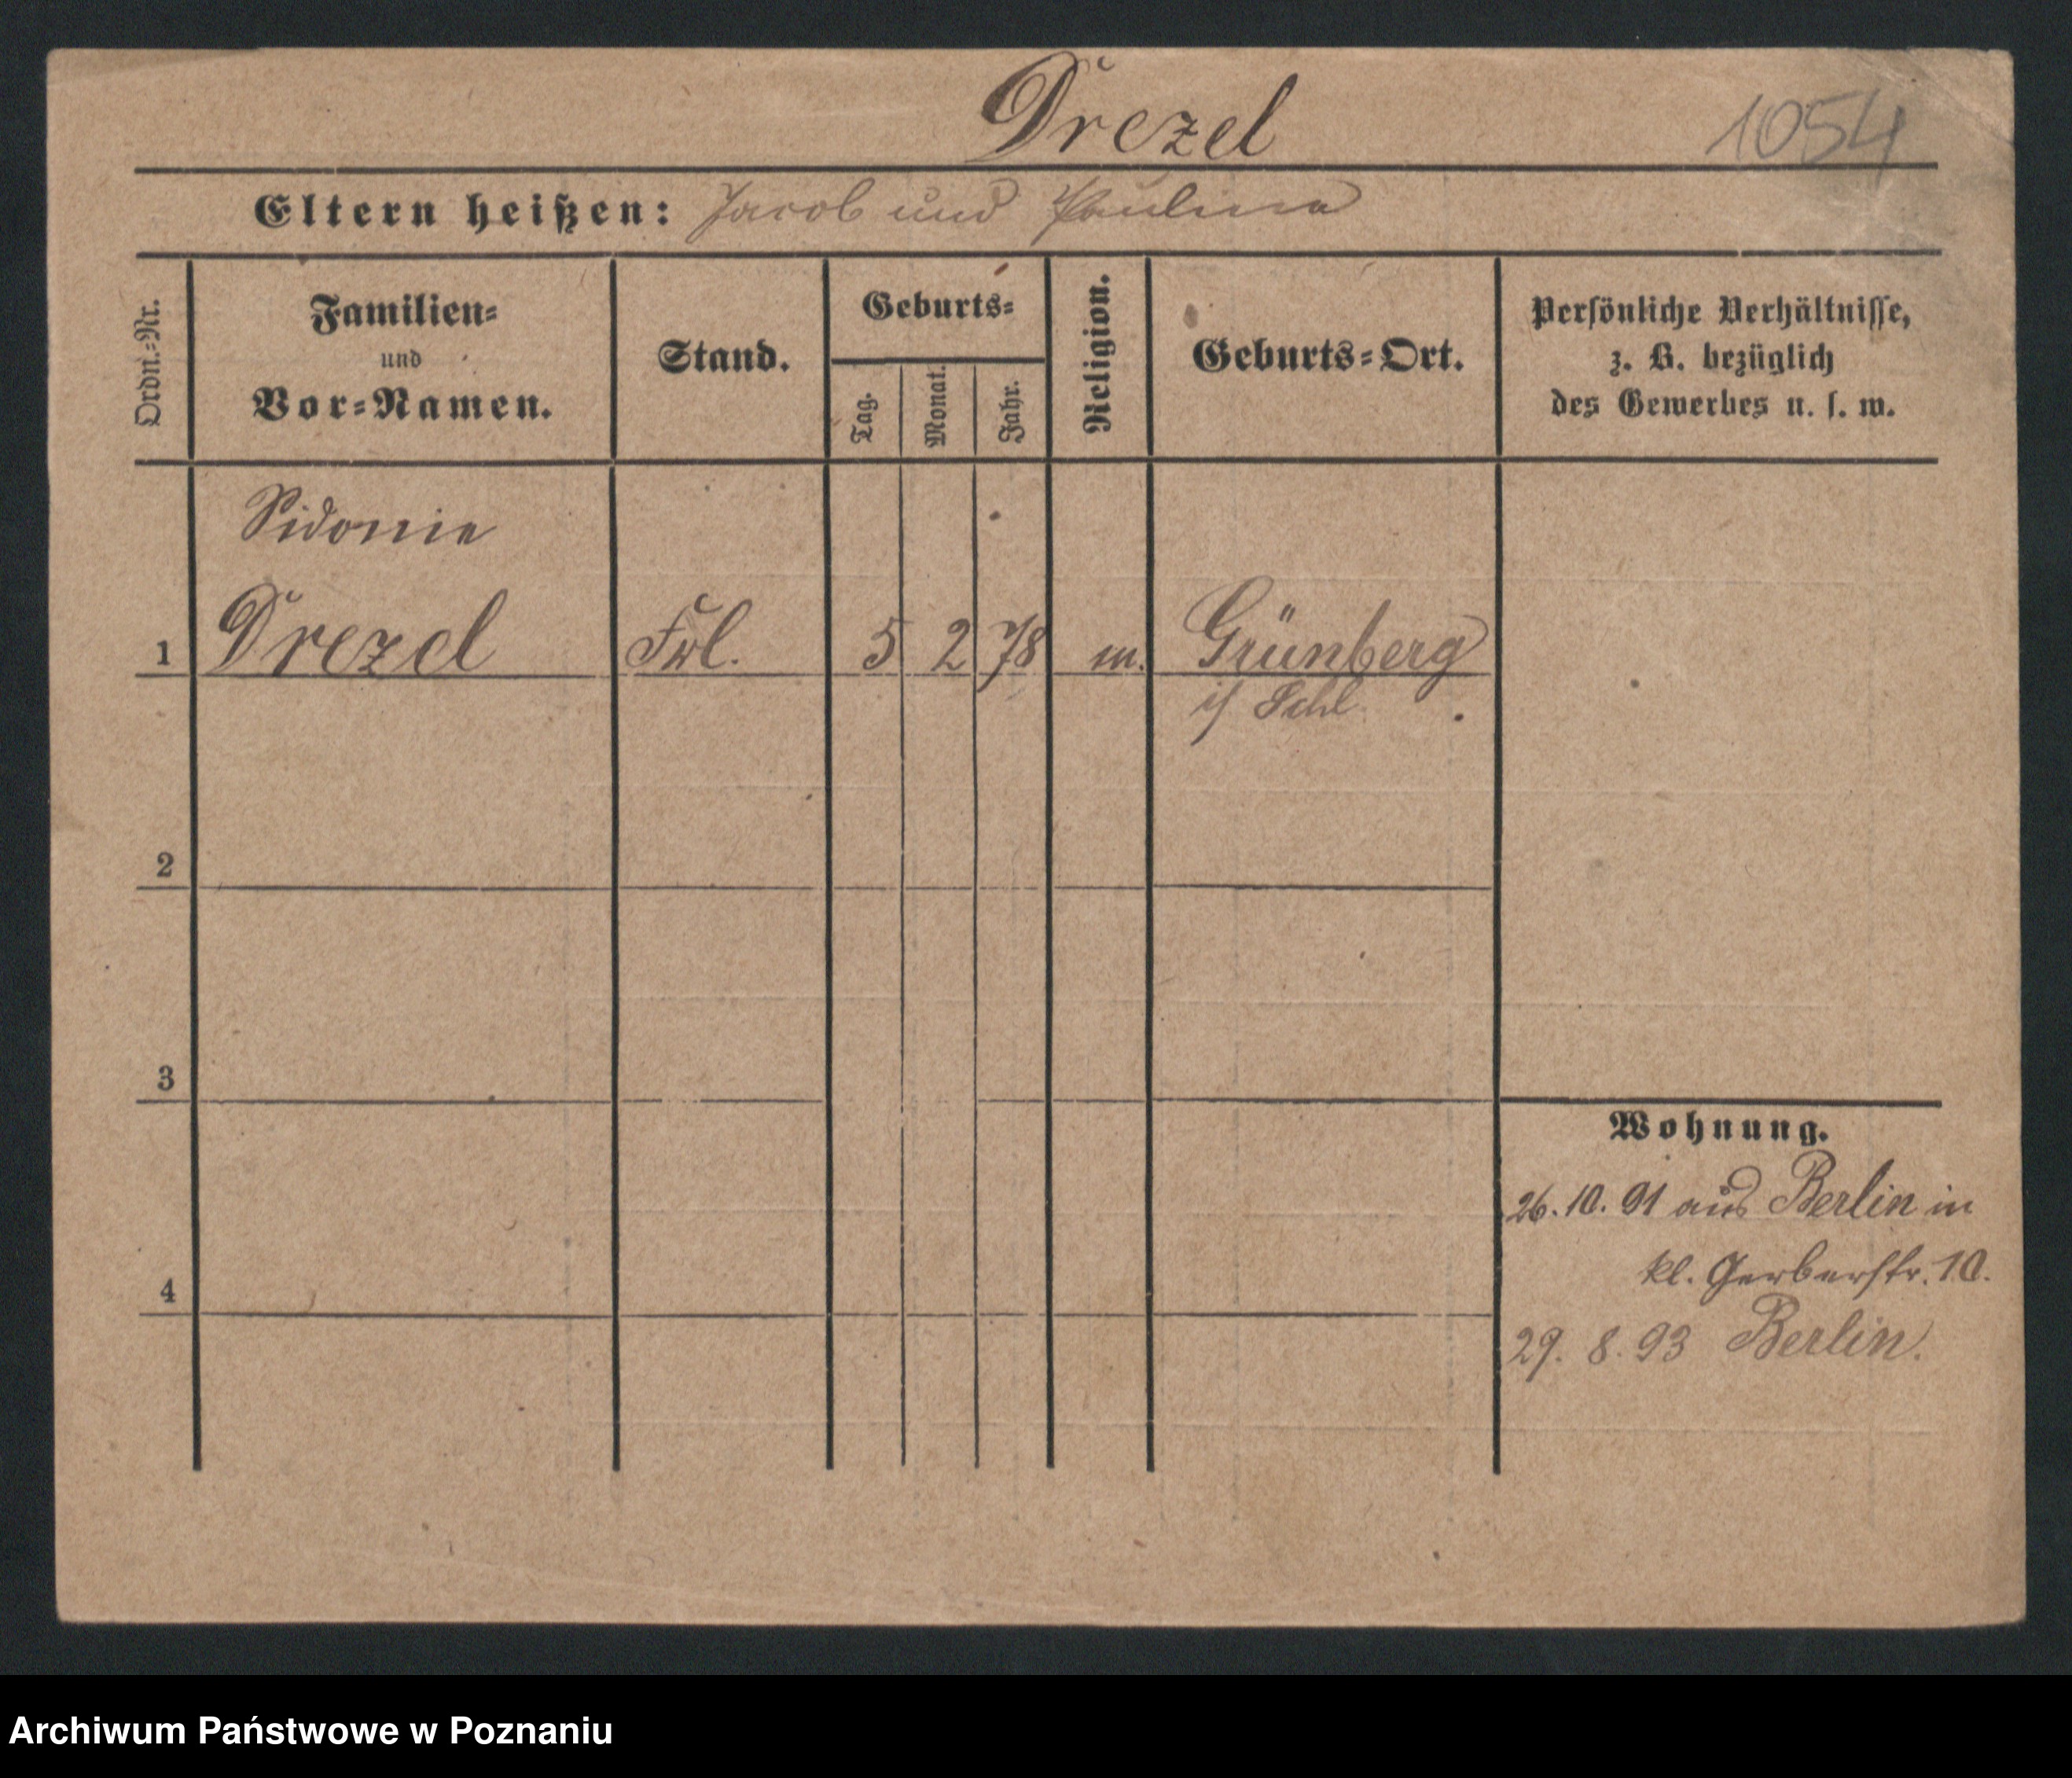 Drezel
1054
Eltern heißen: Jacob und Pauline
Ordn.-Nr.
Familien-
und
Vor-Namen.
Stand.
Geburts-
Tag.
Monat.
Jahr.
Religion.
Geburts-Ort.
Persönliche Verhältnisse,
z. B. bezüglich
des Gewerbes u. s. w.
Sidonie
1 Drezel Frl. 5 2 78 m. Grünberg
i/ Schl.
2
3
4
Wohnung.
26. 10. 91 aus Berlin in
kl. Gerberstr. 10.
29. 8. 93 Berlin.
Archiwum Państwowe w Poznaniu